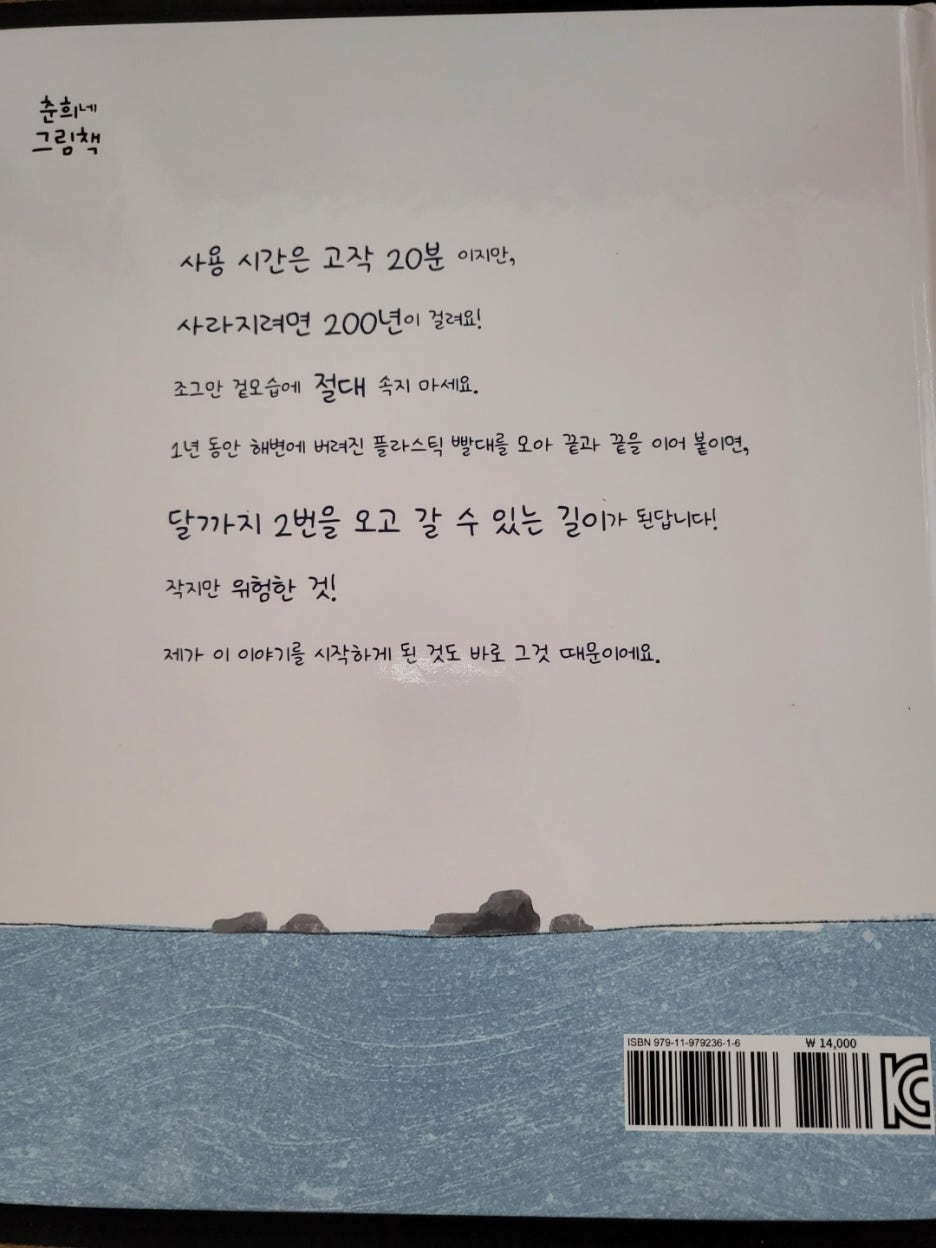 춘희네
그림책
사용 시간은 고작 20분 이지만,
사라지려면 200년이 걸려요!
조그만 겉모습에 절대 속지 마세요.
1년 동안 해변에 버려진 플라스틱 빨대를 모아 끝과 끝을 이어 붙이면,
달까지 2번을 오고 갈 수 있는 길이가 된답니다!
작지만 위험한 것!
제가 이 이야기를 시작하게 된 것도 바로 그것 때문이에요.
ISBN 979-11-979236-1-6 ₩ 14,000
KC